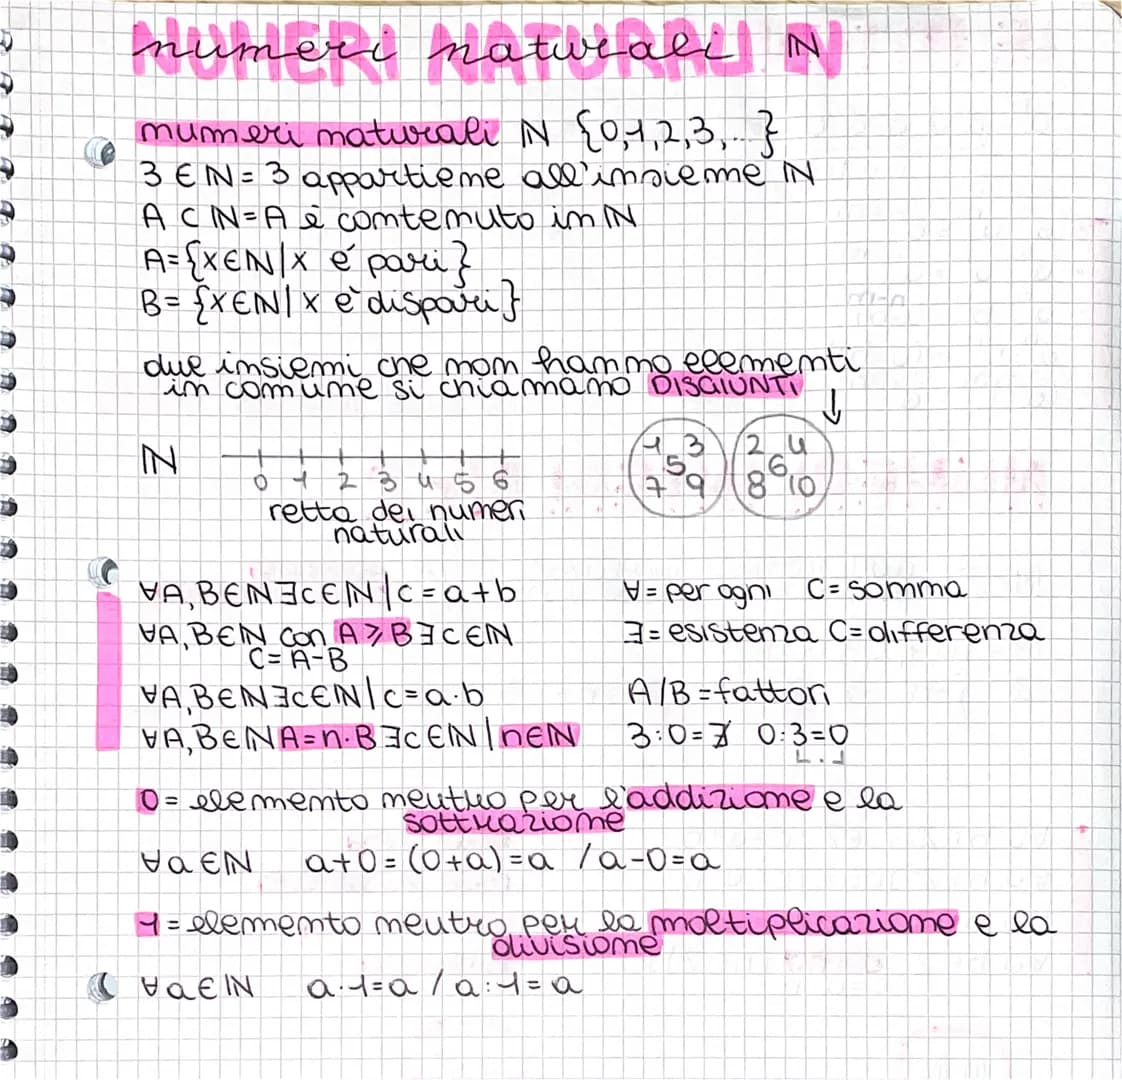 numeri naturali N
NUMERI NATURALI N
numeri naturali ℕ {0,1,2,3,...}
3 ∈ ℕ = 3 appartiene all'insieme ℕ
A ⊂ ℕ = A è contenuto in ℕ
A = {x∈ℕ | x é pari}
B = {x∈ℕ | x è dispari}
due insiemi che non hanno elementi
in comune si chiamano DISGIUNTI ↓
1 3 5 7 9
2 4 6 8 10
ℕ
0 1 2 3 4 5 6
retta dei numeri
naturali
∀A,B∈ℕ ∃c∈ℕ | c = a+b ∀ = per ogni C = somma
∀A,B∈ℕ con A ⩾ B ∃ C∈ℕ ∃ = esistenza C = differenza
C = A-B
∀A,B∈ℕ ∃C∈ℕ | c = a·b A/B = fattori
∀A,B∈ℕ A=n·B ∃C∈ℕ | n∈ℕ 3:0=∄ 0:3=0
0 = elemento neutro per l'addizione e la
sottrazione
∀a∈ℕ a+0=(0+a)=a / a-0=a
1 = elemento neutro per la moltiplicazione e la
divisione
∀a∈ℕ a·1=a / a:1=a